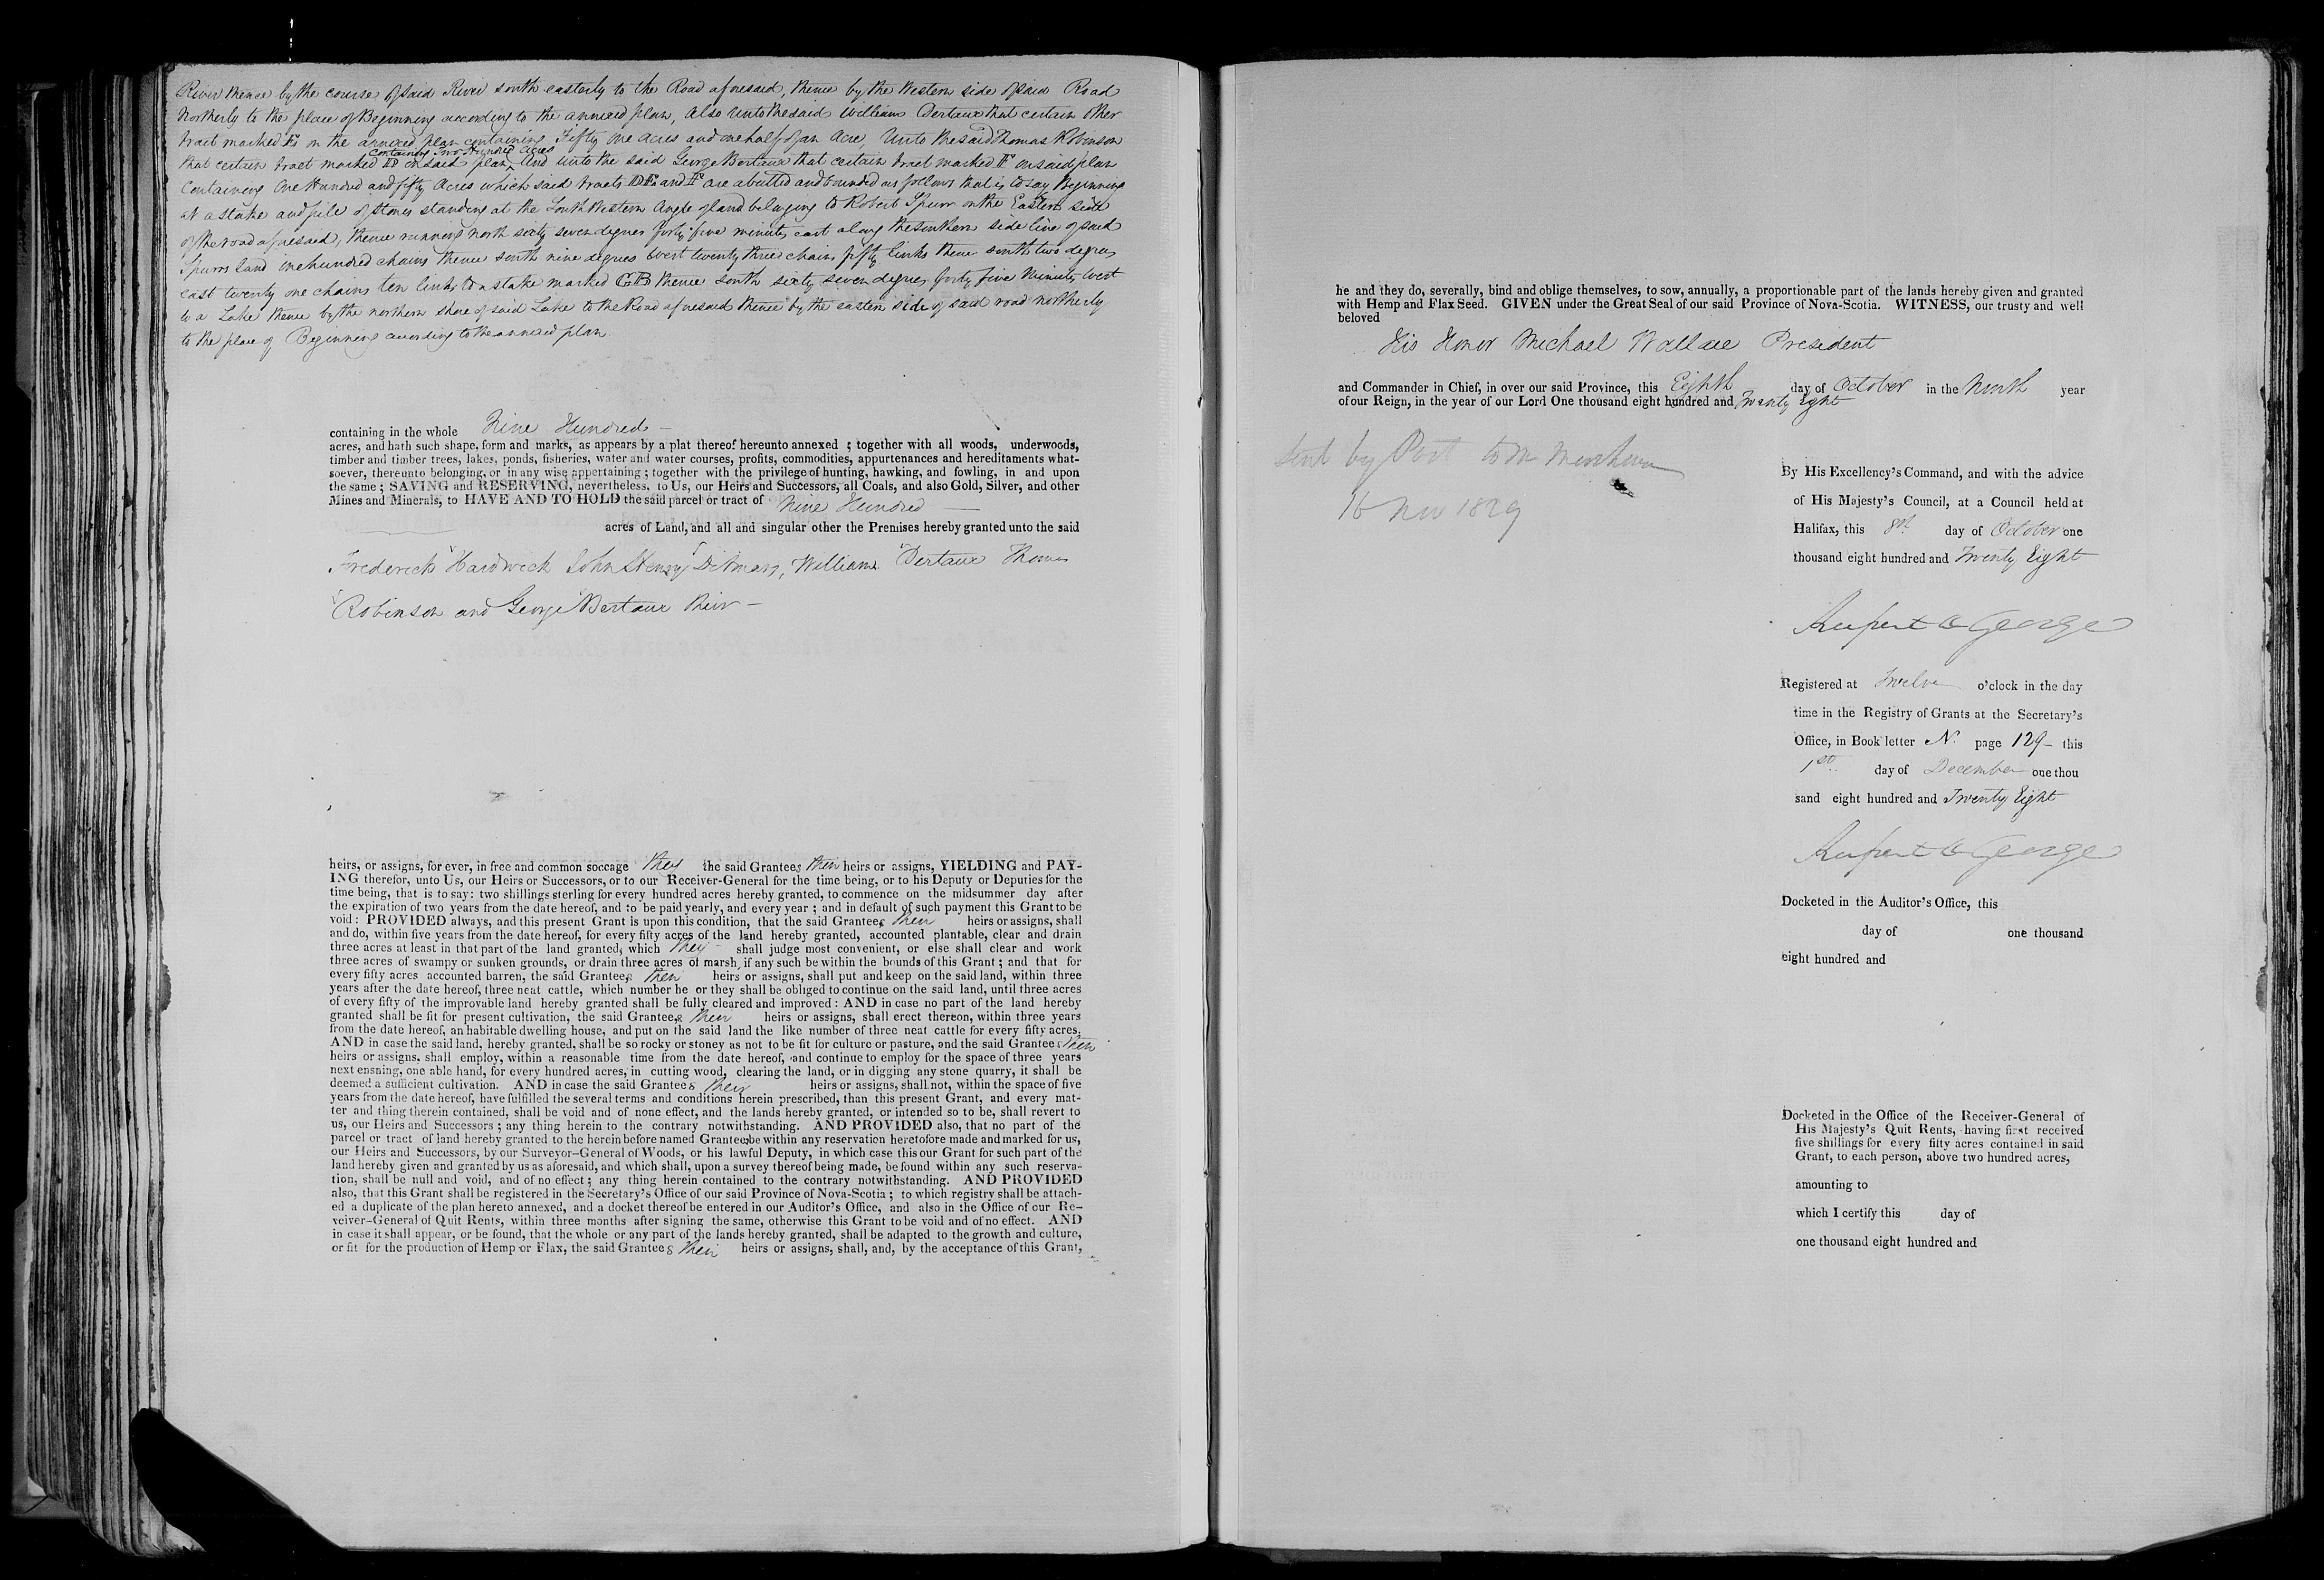 River thence by the course of said River south easterly to the Road aforesaid, thence by the Western side of said Road
Northerly to the place of Beginning according to the annexed plan, Also Unto the said William Bertaux that certain other
tract marked E on the annexed plan containing Fifty one acres and one half of an Acre, Unto the said Thomas Robinson
containing Two Hundred Acres
that certain tract marked D on said plan ^ And unto the said George Bertaux that certain tract marked F on said plan
Containing One Hundred and fifty Acres which said tracts D E and F are abutted and bounded as follows that is to say Beginning
at a stake and pile of stones standing at the South Western Angle of land belonging to Robert Spurr on the Eastern side
of the road aforesaid, thence running north sixty seven degrees forty five minutes east along the southern side line of said
Spurrs land one hundred chains thence south nine degrees west twenty three chains fifty links thence south two degrees
east twenty one chains ten links to a stake marked GB thence south sixty seven degrees forty five Minutes West
to a Lake thence by the northern shore of said Lake to the Road aforesaid thence by the eastern side of said road northerly
to the place of Beginning according to the annexed plan.
containing in the whole Nine Hundred -
acres, and hath such shape, form and marks, as appears by a plat thereof hereunto annexed ; together with all woods, underwoods,
timber and timber trees, lakes, ponds, fisheries, water and water courses, profits, commodities, appurtenances and hereditaments what-
soever, thereunto belonging, or in any wise appertaining ; together with the privilege of hunting, hawking, and fowling, in and upon
the same ; SAVING and RESERVING, nevertheless, to Us, our Heirs and Successors, all Coals, and also Gold, Silver, and other
Mines and Minerals, to HAVE AND TO HOLD the said parcel or tract of Nine Hundred -
acres of Land, and all and singular other the Premises hereby granted unto the said
Frederick Hardwick John Henry Ditmars, William Bertaux Thomas
Robinson and George Bertaux their -
heirs, or assigns, for ever, in free and common soccage they the said Grantees their heirs or assigns, YIELDING and PAY-
ING therefor, unto Us, our Heirs or Successors, or to our Receiver-General for the time being, or to his Deputy or Deputies for the
time being, that is to say: two shillings sterling for every hundred acres hereby granted, to commence on the midsummer day after
the expiration of two years from the date hereof, and to be paid yearly, and every year ; and in default of such payment this Grant to be
void : PROVIDED always, and this present Grant is upon this condition, that the said Grantees their heirs or assigns, shall
and do, within five years from the date hereof, for every fifty acres of the land hereby granted, accounted plantable, clear and drain
three acres at least in that part of the land granted, which they - shall judge most convenient, or else shall clear and work
three acres of swampy or sunken grounds, or drain three acres of marsh, if any such be within the bounds of this Grant ; and that for
every fifty acres accounted barren, the said Grantees their heirs or assigns, shall put and keep on the said land, within three
years after the date hereof, three neat cattle, which number he or they shall be obliged to continue on the said land, until three acres
of every fifty of the improvable land hereby granted shall be fully cleared and improved : AND in case no part of the land hereby
granted shall be fit for present cultivation, the said Grantees their heirs or assigns, shall erect thereon, within three years
from the date hereof, an habitable dwelling house, and put on the said land the like number of three neat cattle for every fifty acres.
AND in case the said land, hereby granted, shall be so rocky or stoney as not to be fit for culture or pasture, and the said Grantees their
heirs or assigns, shall employ, within a reasonable time from the date hereof, and continue to employ for the space of three years
next ensning, one able hand, for every hundred acres, in cutting wood, clearing the land, or in digging any stone quarry, it shall be
deemed a sufficient cultivation. AND in case the said Grantees their heirs or assigns, shall not, within the space of five
years from the date hereof, have fulfilled the several terms and conditions herein prescribed, than this present Grant, and every mat-
ter and thing therein contained, shall be void and of none effect, and the lands hereby granted, or intended so to be, shall revert to
us, our Heirs and Successors ; any thing herein to the contrary notwithstanding. AND PROVIDED also, that no part of the
parcel or tract of land hereby granted to the herein before named Grantees be within any reservation heretofore made and marked for us,
our Heirs and Successors, by our Surveyor-General of Woods, or his lawful Deputy, in which case this our Grant for such part of the
land hereby given and granted by us as aforesaid, and which shall, upon a survey thereof being made, be found within any such reserva-
tion, shall be null and void, and of no effect ; any thing herein contained to the contrary notwithstanding. AND PROVIDED
also, that this Grant shall be registered in the Secretary's Office of our said Province of Nova-Scotia ; to which registry shall be attach-
ed a duplicate of the plan hereto annexed, and a docket thereof be entered in our Auditor's Office, and also in the Office of our Re-
veiver-General of Quit Rents, within three months after signing the same, otherwise this Grant to be void and of no effect. AND
in case it shall appear, or be found, that the whole or any part of the lands hereby granted, shall be adapted to the growth and culture,
or fit for the production of Hemp or Flax, the said Grantees their heirs or assigns, shall, and, by the acceptance of this Grant,
he and they do, severally, bind and oblige themselves, to sow, annually, a proportionable part of the lands hereby given and granted
with Hemp and Flax Seed. GIVEN under the Great Seal of our said Province of Nova-Scotia. WITNESS, our trusty and well
beloved
His Honor Michael Wallace President
and Commander in Chief, in over our said Province, this Eighth day of October in the Ninth year
of our Reign, in the year of our Lord One thousand eight hundred and Twenty Eight
Sent by Post to Mr
16 Nov 1829
By His Excellency's Command, and with the advice
of His Majesty's Council, at a Council held at
Halifax, this 8th day of October one
thousand eight hundred and Twenty Eight
Rupert D George
Registered at Twelve o'clock in the day
time in the Registry of Grants at the Secretary's
Office, in Book letter N. page 129 - this
1st day of December one thou
sand eight hundred and Twenty Eight
Rupert D George
Docketed in the Auditor's Office, this
day of one thousand
eight hundred and
Docketed in the Office of the Receiver-General of
His Majesty's Quit Rents, having first received
five shillings for every fifty acres contained in said
Grant, to each person, above two hundred acres,
amounting to
which I certify this day of
one thousand eight hundred and